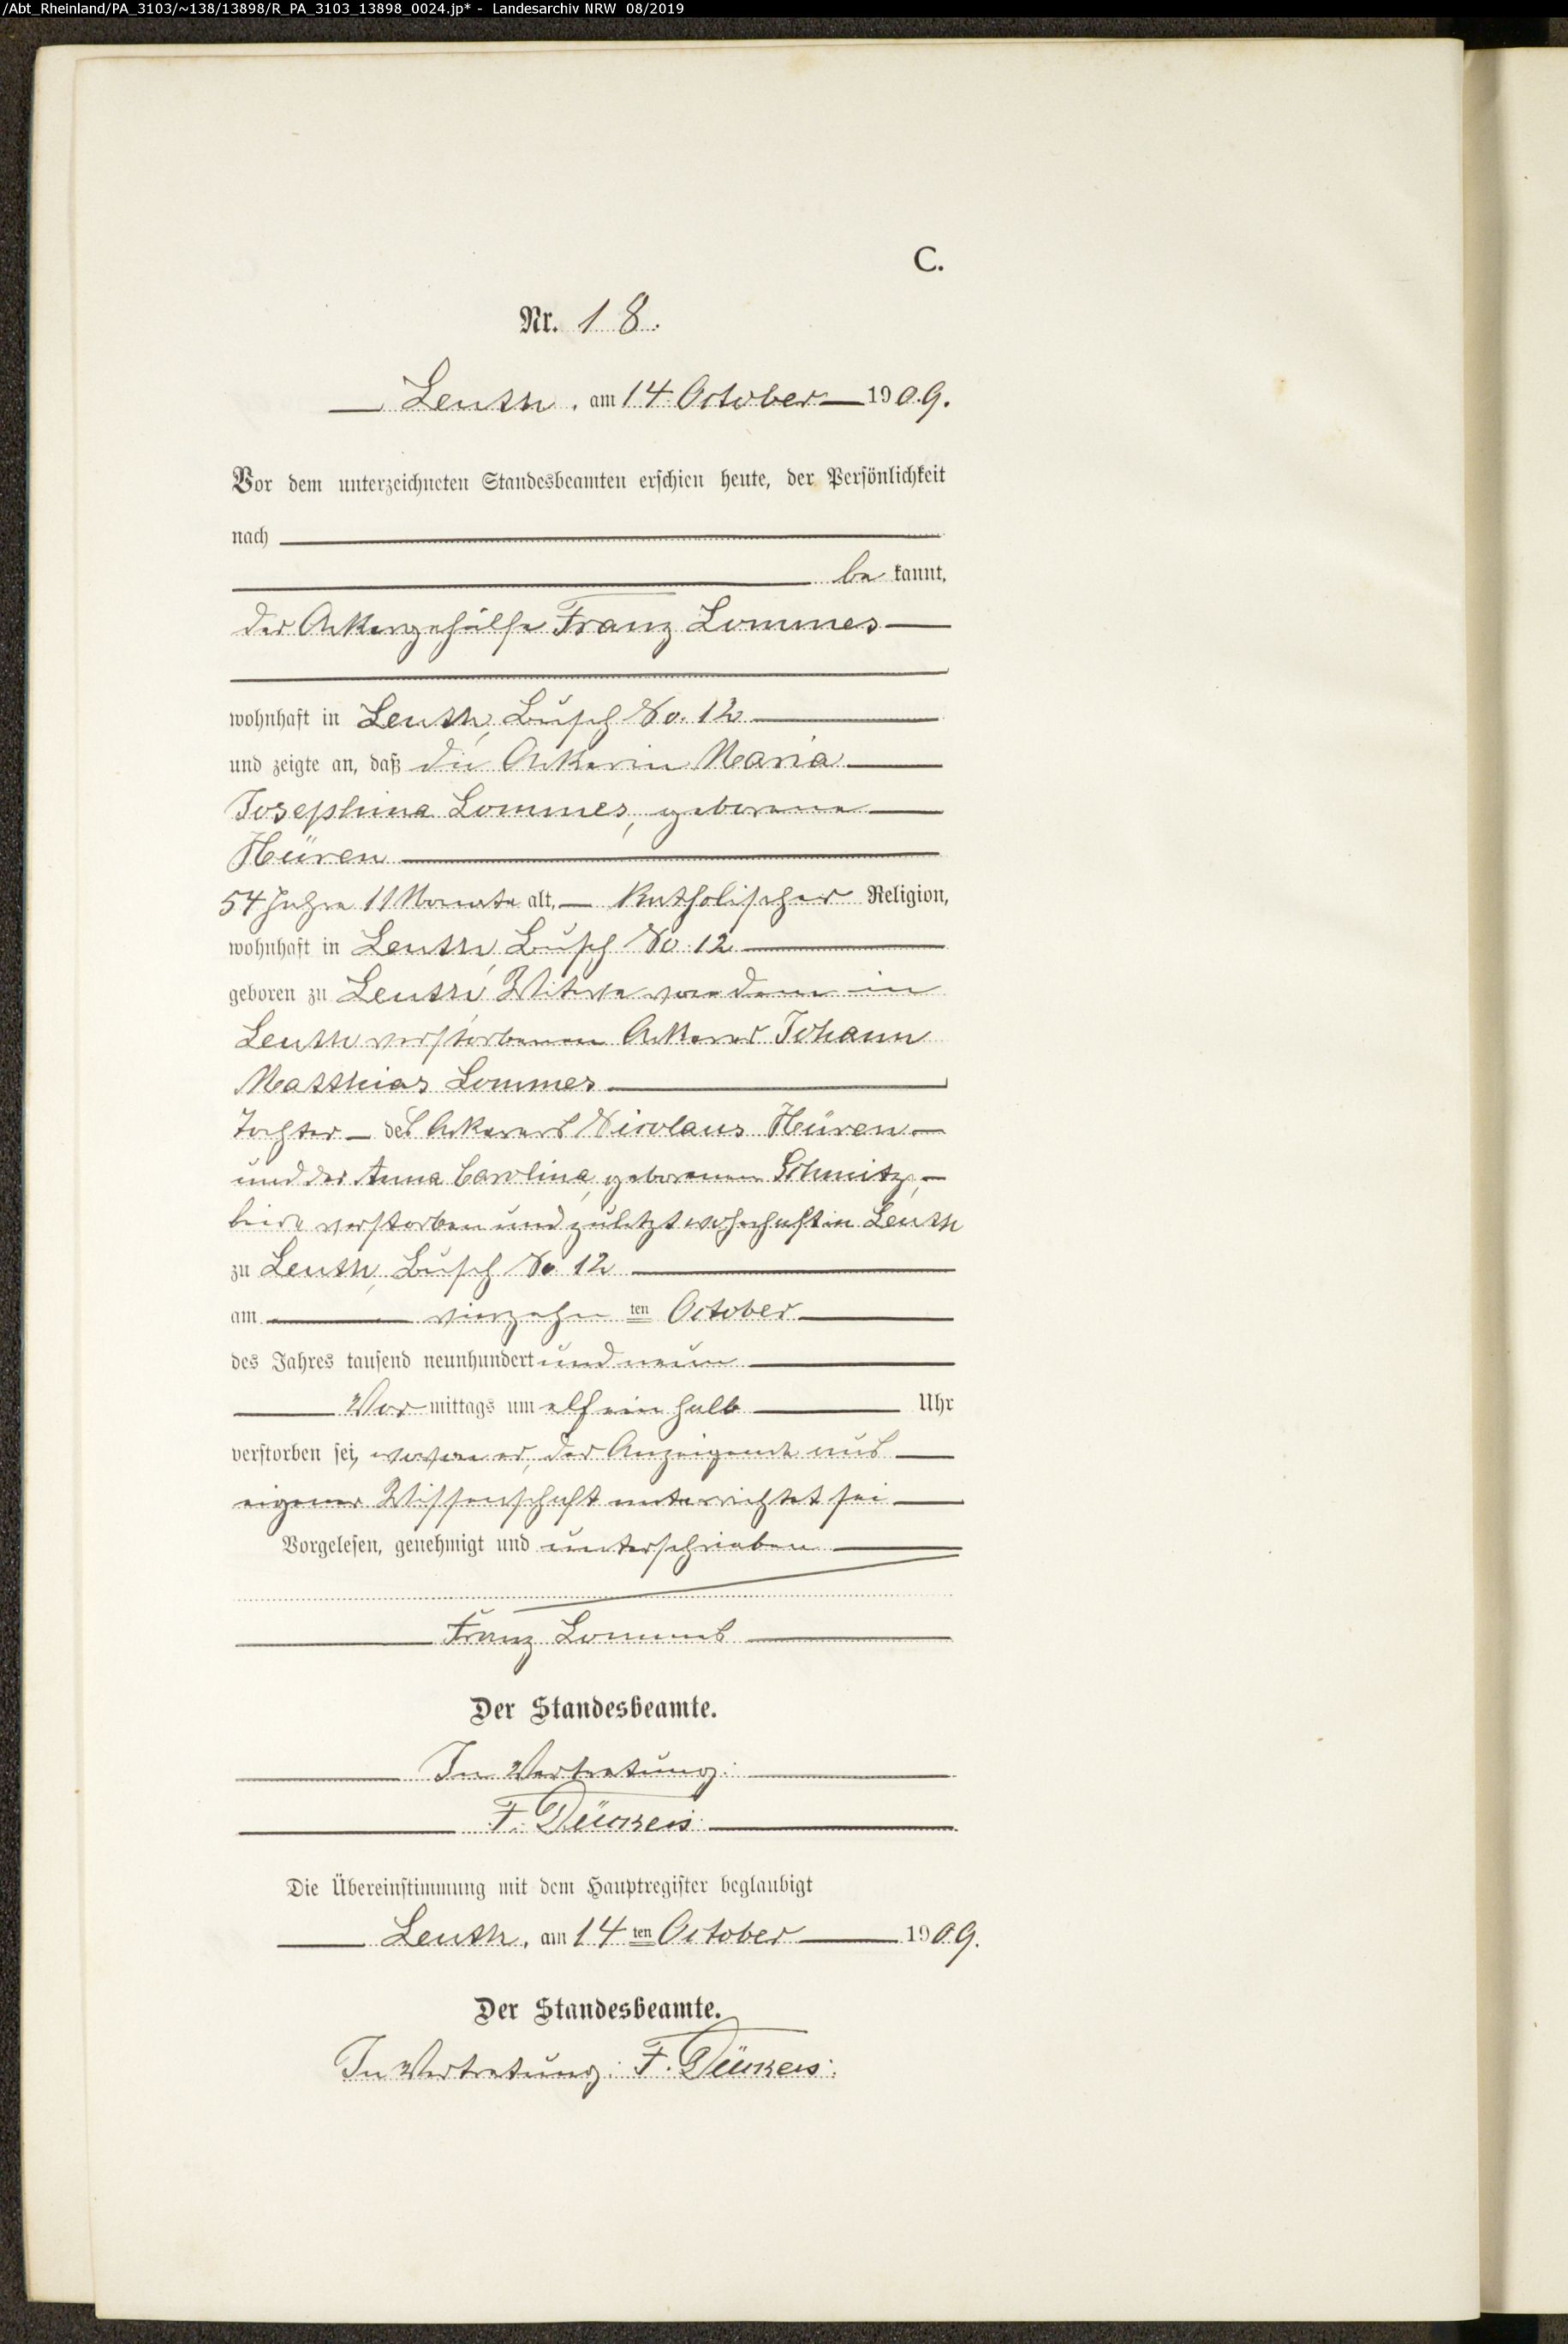 /Abt_Rheinland/PA_3103/~138/13898/R_PA_3103_13898_0024.jp* - Landesarchiv NRW 08/2019
C.
Nr. 18.
Leuth, am 14. October 1909.
Vor dem unterzeichneten Standesbeamten erschien heute, der Persönlichkeit
nach
be kannt,
der Ackergehülfe Franz Lommes
wohnhaft in Leuth, Busch No. 12
und zeigte an, daß die Ackerin Maria
Josephina Lommes, geborene
Hüren
54 Jahre 11 Monate alt, Katholischer Religion,
wohnhaft in Leuth, Busch No. 12
geboren zu Leuth, Witwe von dem in
Leuth verstorbenen Ackerer Johann
Matthias Lommes
Tochter des Ackerers Nicolaus Hüren
und der Anna Carolina, geborenen Schmitz,
beide verstorben und zuletzt wohnhaft in Leuth
zu Leuth, Busch No 12
am vierzehn ten October
des Jahres tausend neunhundert und neun
Vor mittags um elf ein halb Uhr
verstorben sei, wovon er, der Anzeigende aus
eigener Wissenschaft unterrichtet sei
Vorgelesen, genehmigt und unterschrieben
Franz Lommes
Der Standesbeamte.
In Vertretung:
F.
Die Übereinstimmung mit dem Hauptregister beglaubigt
Leuth, am 14 ten October 1909.
Der Standesbeamte.
In Vertretung: F.